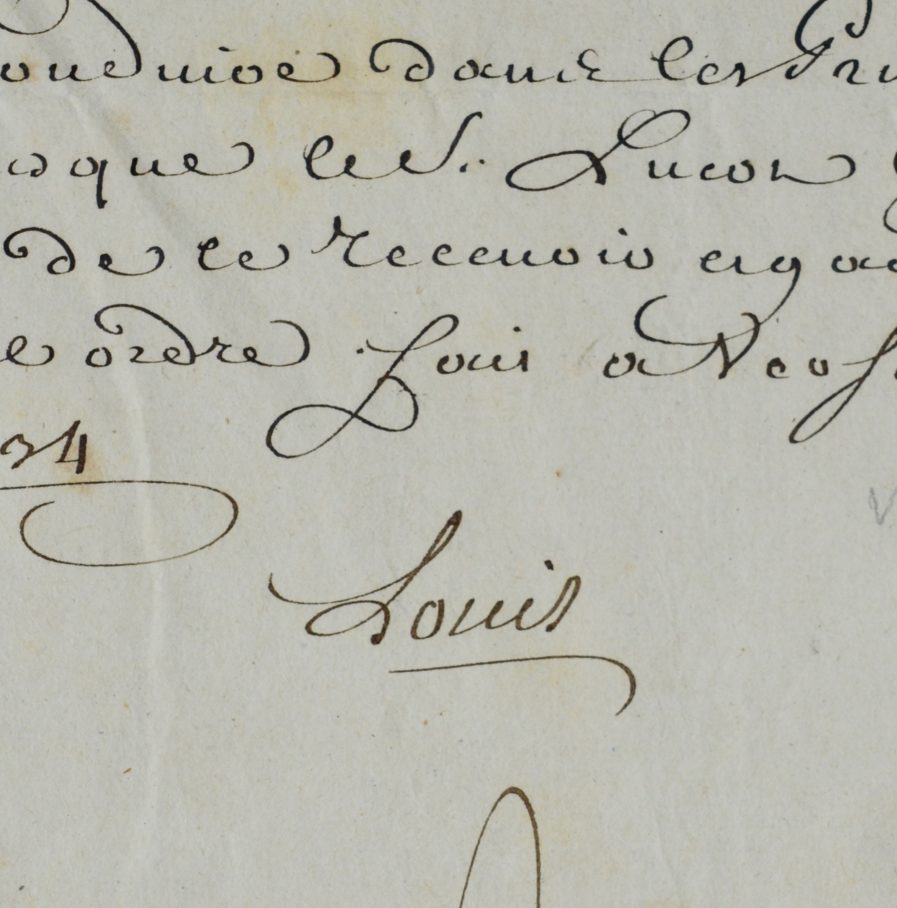 onduire dans les
que le S. Lucon
de le recevoir et
ordre Louis a
34
Louis